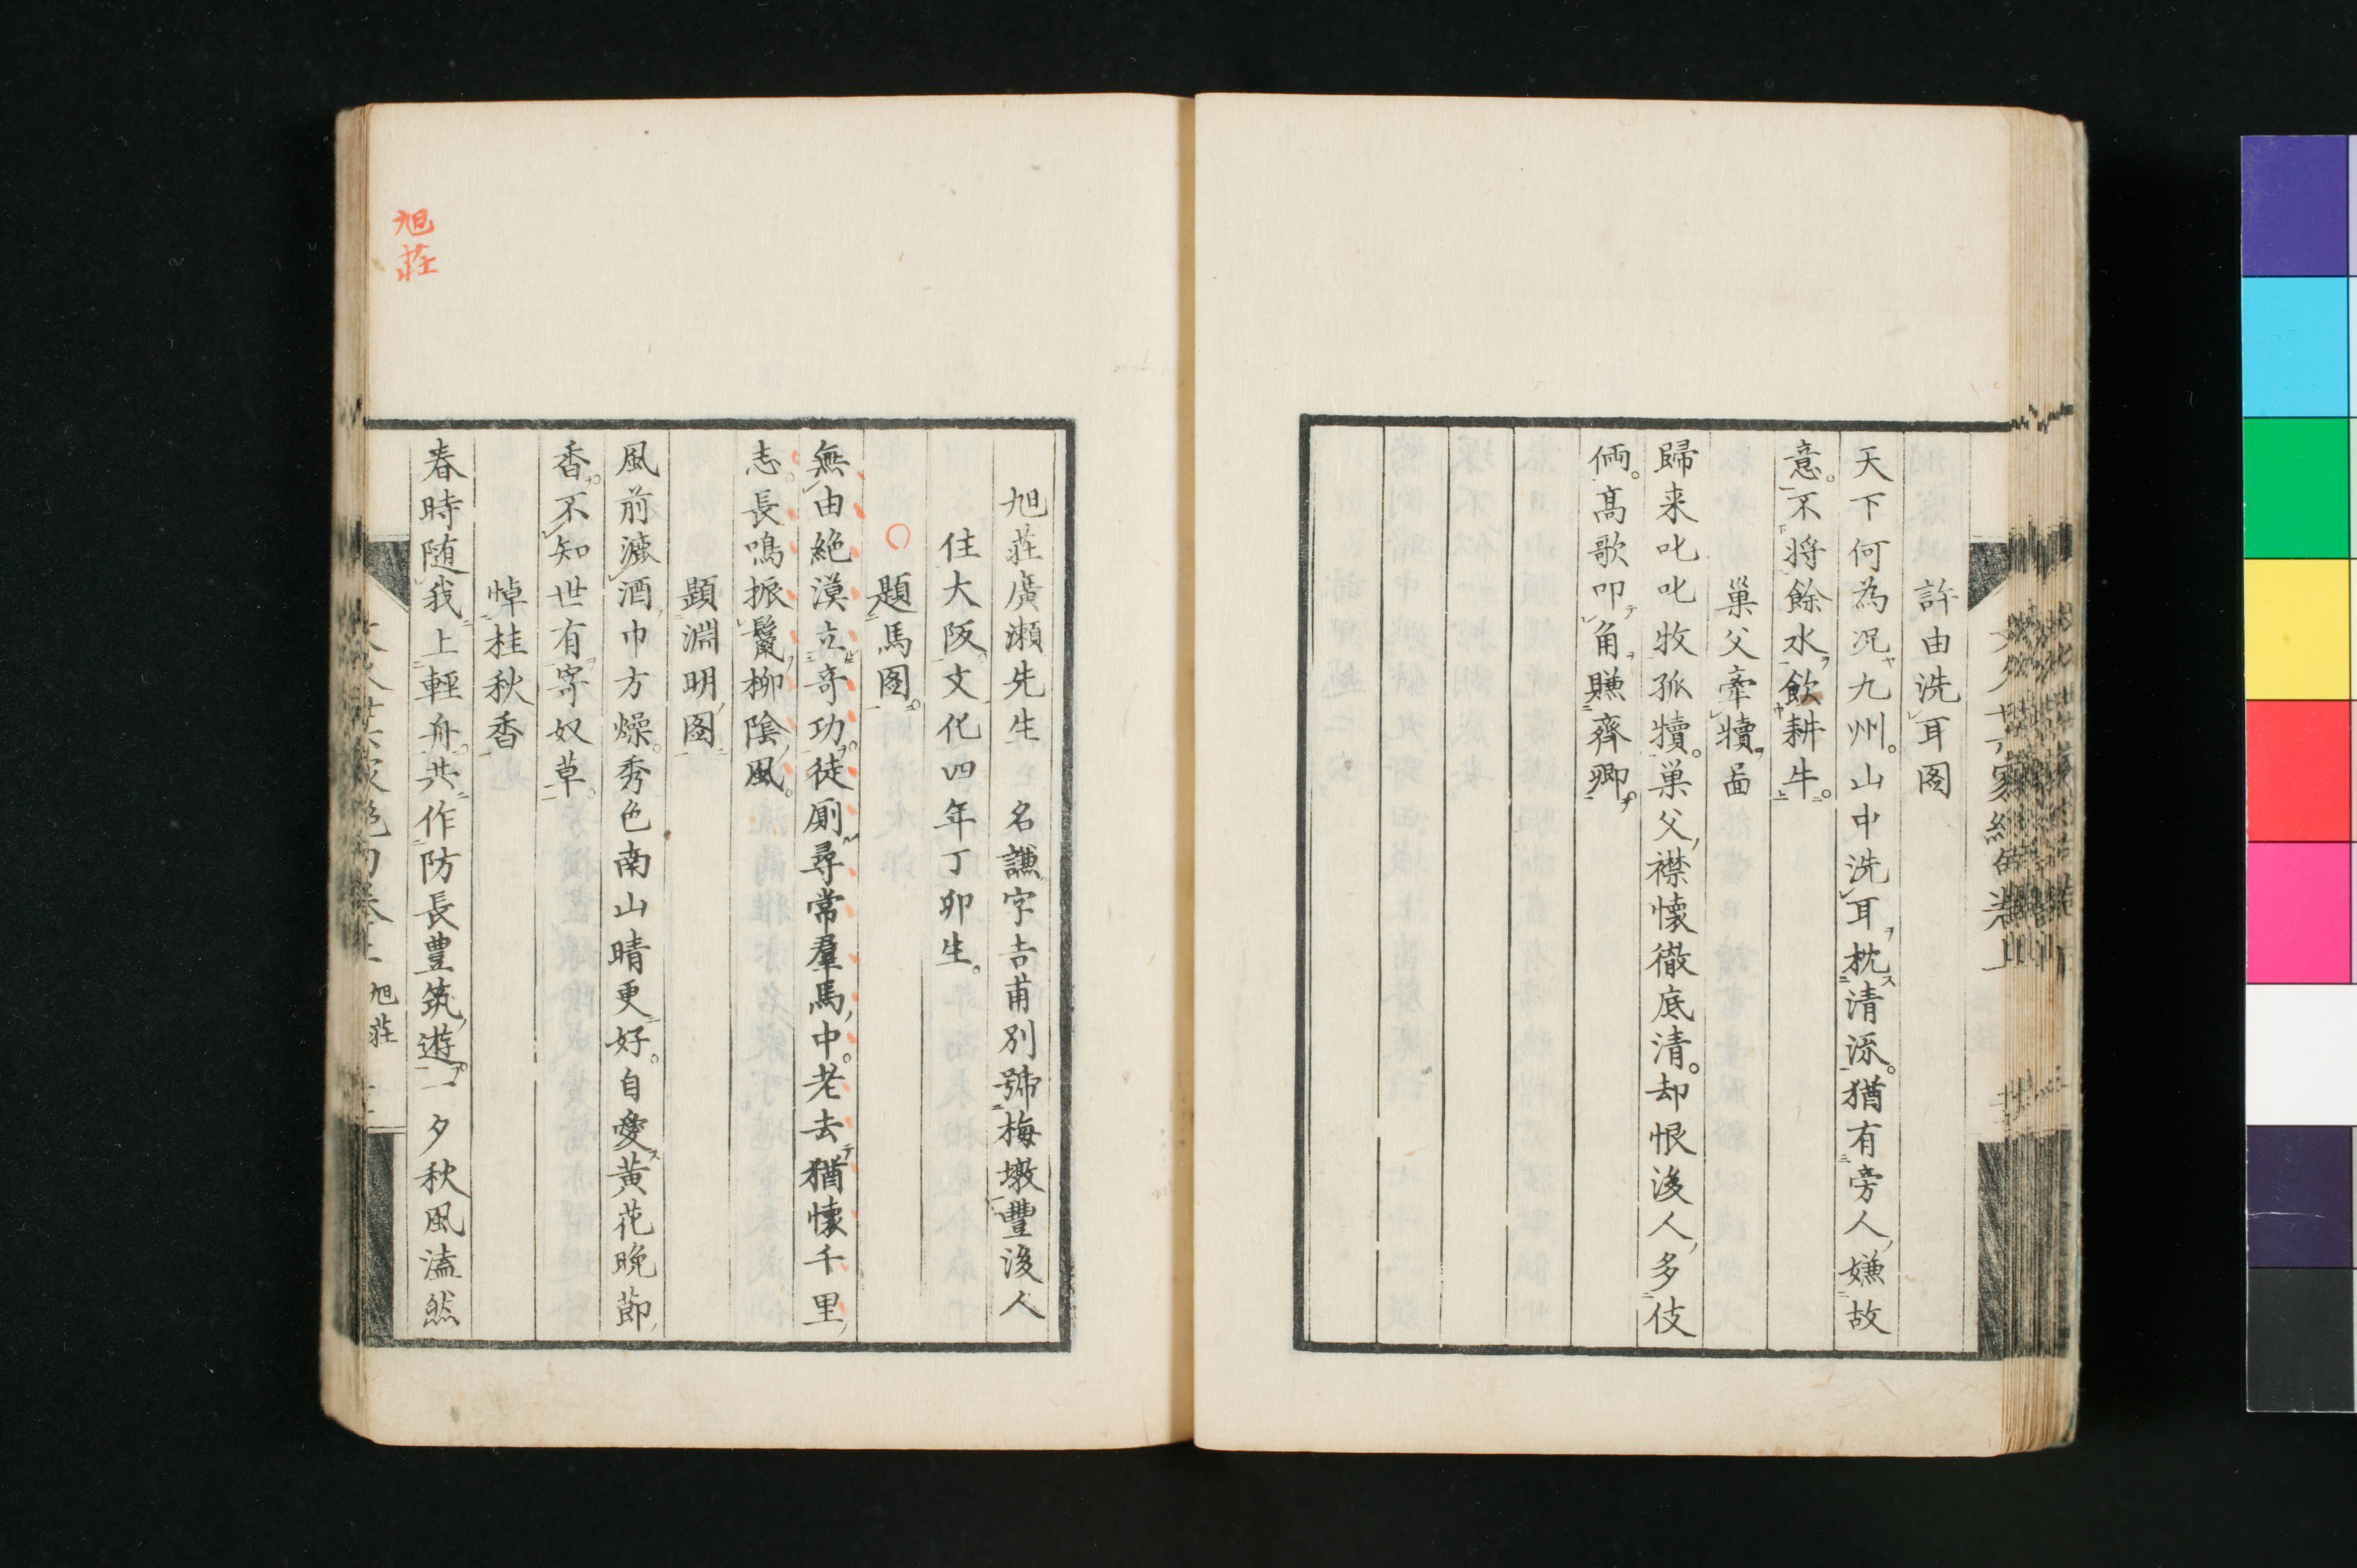 許由洗耳圖
天下何為况九州。山中洗耳枕清流。猶有旁人嫌故
意。不将餘水飲耕牛。
巢父牽犢啚
歸来叱叱牧孤犢。巢父襟懐徹底清。却恨後人多伎
倆。髙歌叩角賺齊卿。
旭荘廣瀬先生 名謙字吉甫別號梅墩豐後人
住大阪文化四年丁卯生。
題馬圖。
無由絶漠立奇功。徒厠尋常羣馬中。老去猶懐千里
志。長鳴振鬣柳陰風。
題淵明圖
風前漉酒巾方燥。秀色南山晴更好。自愛黄花晩節
香。不知世有寄奴草。
悼桂秋香
春時随我上輕舟。共作防長豊筑遊。一夕秋風溘然
旭荘
旭荘